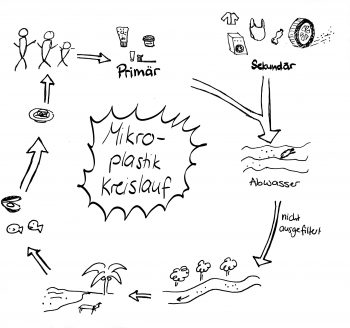 Primär
Sekundär
Mikro-
plastik
Kreislauf
Abwasser
nicht
ausgefiltert